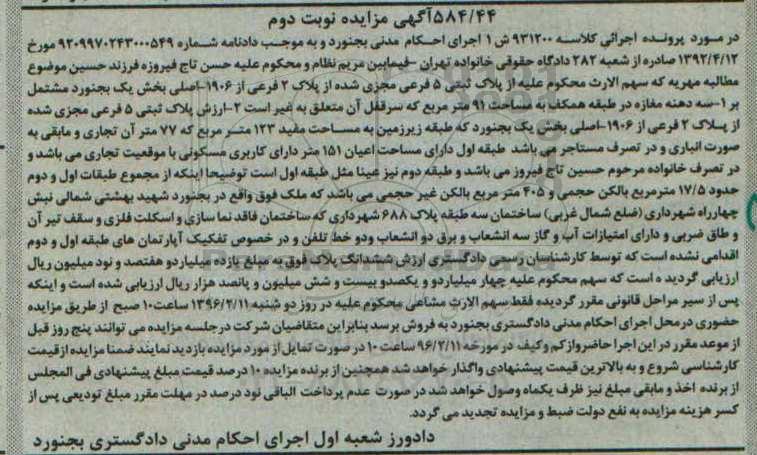 ۵۸۴/۴۴آگهی مزایده نوبت دوم
در مورد پرونده اجرائی کلاسه ۹۳۱۲۰۰ ش ۱ اجرای احکام مدنی بجنورد و به موجب دادنامه شماره ۹۲۰۹۹۷۰۲۴۳۰۰۰۵۴۹ مورخ
۱۳۹۲/۴/۱۲ صادره از شعبه ۲۸۲ دادگاه حقوقی خانواده تهران -فیمابین مریم نظام و محکوم علیه حسن تاج فیروزه فرزند حسین موضوع
مطالبه مهریه که سهم الارث محکوم علیه از پلاک ثبتی ۵ فرعی مجزی شده از پلاک ۲ فرعی از ۱۹۰۶-اصلی بخش یک بجنورد مشتمل
بر ۱-سه دهنه مغازه در طبقه همکف به مساحت ۹۱ متر مربع که سرقفل آن متعلق به غیر است ۲-ارزش پلاک ثبتی ۵ فرعی مجزی شده
از پلاک ۲ فرعی از ۱۹۰۶-اصلی بخش یک بجنورد که طبقه زیرزمین به مساحت مفید ۱۲۳ متر مربع که ۷۷ متر آن تجاری و مابقی به
صورت انباری و در تصرف مستاجر می باشد طبقه اول دارای مساحت اعیان ۱۵۱ متر دارای کاربری مسکونی با موقعیت تجاری می باشد و
در تصرف خانواده مرحوم حسین تاج فیروز می باشد و طبقه دوم نیز عینا مثل طبقه اول است توضیحا اینکه از مجموع طبقات اول و دوم
حدود ۱۷/۵ مترمربع بالکن حجمی و ۴۰۵ متر مربع بالکن غیر حجمی می باشد که ملک فوق واقع در بجنورد شهید بهشتی شمالی نبش
چهارراه شهرداری (ضلع شمال غربی) ساختمان سه طبقه پلاک ۶۸۸ شهرداری که ساختمان فاقد نما سازی و اسکلت فلزی و سقف تیر آن
و طاق ضربی و دارای امتیازات آب و گاز سه انشعاب و برق دو انشعاب ودو خط تلفن و در خصوص تفکیک آپارتمان های طبقه اول و دوم
اقدامی نشده است که توسط کارشناسان رسمی دادگستری ارزش ششدانگ پلاک فوق به مبلغ یازده میلیاردو هفتصد و نود میلیون ریال
ارزیابی گردید ه است که سهم محکوم علیه چهار میلیاردو و یکصدو بیست و شش میلیون و پانصد هزار ریال ارزیابی شده است و اینکه
پس از سیر مراحل قانونی مقرر گردیده فقط سهم الارث مشاعی محکوم علیه در روز دو شنبه ۱۳۹۶/۲/۱۱ ساعت۱۰ صبح از طریق مزایده
حضوری درمحل اجرای احکام مدنی دادگستری بجنورد به فروش برسد بنابراین متقاضیان شرکت درجلسه مزایده می توانند پنج روز قبل
از موعد مقرر در این اجرا حاضرواز کم وکیف در مورخه ۹۶/۲/۱۱ ساعت ۱۰ در صورت تمایل از مورد مزایده بازدید نمایند ضمنا مزایده ازقیمت
کارشناسی شروع و به بالاترین قیمت پیشنهادی واگذار خواهد شد همچنین از برنده مزایده ۱۰ درصد قیمت مبلغ پیشنهادی فی المجلس
از برنده اخذ و مابقی مبلغ نیز ظرف یکماه وصول خواهد شد در صورت عدم پرداخت الباقی نود درصد در مهلت مقرر مبلغ تودیعی پس از
کسر هزینه مزایده به نفع دولت ضبط و مزایده تجدید می گردد.
دادورز شعبه اول اجرای احکام مدنی دادگستری بجنورد